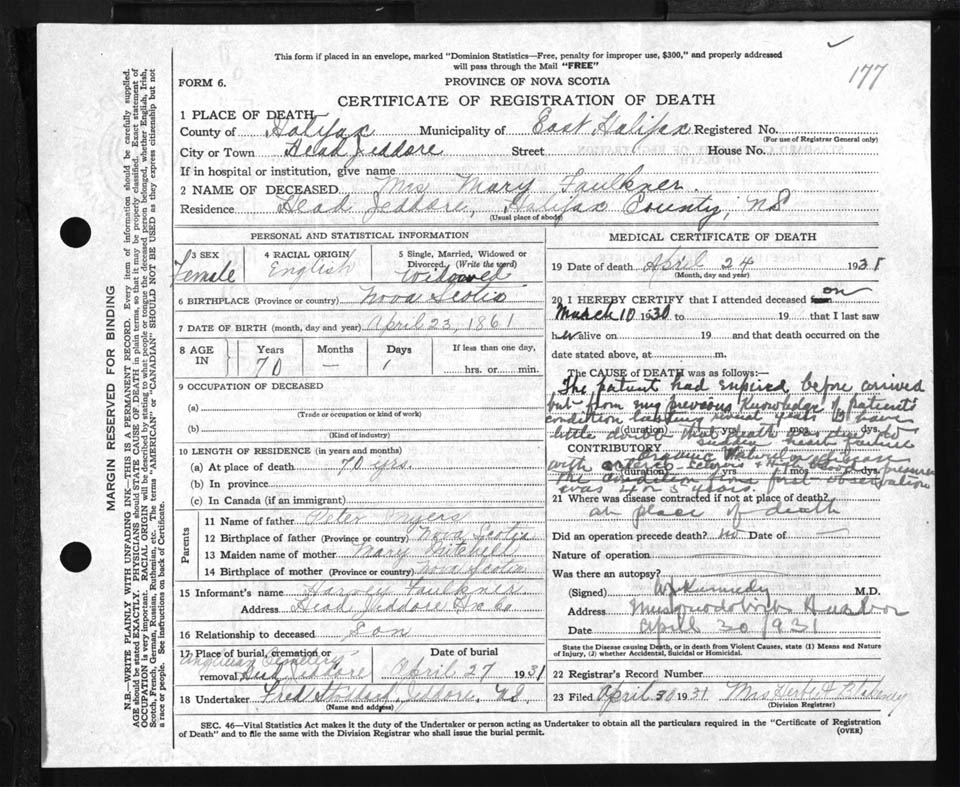 This form if placed in an envelope, marked "Dominion Statistics—Free, penalty for improper use, $300," and properly addressed
will pass through the Mail "FREE"
177
FORM 6.
PROVINCE OF NOVA SCOTIA
CERTIFICATE OF REGISTRATION OF DEATH
1 PLACE OF DEATH
County of Halifax Municipality of East Halifax Registered No.
(For use of Registrar General only)
City or Town Head Jeddore Street House No.
If in hospital or institution, give name
2 NAME OF DECEASED Mrs Mary Faulkner
Residence Head Jeddore, Halifax County, NS
(Usual place of abode)
PERSONAL AND STATISTICAL INFORMATION
3 SEX Female
4 RACIAL ORIGIN English
5 Single, Married, Widowed or
Divorced. (Write the word)
Widowed
6 BIRTHPLACE (Province or country) Nova Scotia
7 DATE OF BIRTH (month, day and year) April 23, 1861
8 AGE IN
Years 70
Months —
Days 1
If less than one day,
hrs. or min.
9 OCCUPATION OF DECEASED
(a)
(Trade or occupation or kind of work)
(b)
(Kind of industry)
10 LENGTH OF RESIDENCE (in years and months)
(a) At place of death 70 yrs.
(b) In province
(c) In Canada (if an immigrant)
Parents
11 Name of father Peter Myers
12 Birthplace of father (Province or country) Nova Scotia
13 Maiden name of mother Mary Mitchell
14 Birthplace of mother (Province or country) Nova Scotia
15 Informant's name Harvey Faulkner
Address Head Jeddore Hx Co
16 Relationship to deceased Son
17 Place of burial, cremation or
removal Anglican Cemetery Head Jeddore
Date of burial
April 27 1931
18 Undertaker Fred Jeddore, NS
(Name and address)
MEDICAL CERTIFICATE OF DEATH
19 Date of death April 24 1931
(Month, day and year)
20 I HEREBY CERTIFY that I attended deceased on
March 10 1930 to 19 that I last saw
her alive on 19 and that death occurred on the
date stated above, at m.
The CAUSE of DEATH was as follows:—
The patient had expired before arrived
but from my previous knowledge of patient's
condition last year I have
(duration) yrs. mos. dys.
little doubt that death was due to
sudden heart failure
CONTRIBUTORY
Organic Valvular disease
with arterio-sclerosis & High blood pressure
(duration) yrs. mos. dys.
The condition from first observation
was 4 or 5 years.
21 Where was disease contracted if not at place of death?
at place of death
Did an operation precede death? no Date of —
Nature of operation
Was there an autopsy?
(Signed) Kennedy M.D.
Address Musquodoboit Harbor
Date April 30 1931
State the Disease causing Death, or in death from Violent Causes, state (1) Means and Nature
of Injury, (2) whether Accidental, Suicidal or Homicidal.
22 Registrar's Record Number
23 Filed April 30 1931 Mrs
(Division Registrar)
SEC. 46—Vital Statistics Act makes it the duty of the Undertaker or person acting as Undertaker to obtain all the particulars required in the "Certificate of Registration
of Death" and to file the same with the Division Registrar who shall issue the burial permit.
(OVER)
MARGIN RESERVED FOR BINDING
N.B.—WRITE PLAINLY WITH UNFADING INK—THIS IS A PERMANENT RECORD. Every item of information should be carefully supplied.
AGE should be stated EXACTLY. PHYSICIANS should STATE CAUSE OF DEATH in plain terms, so that it may be properly classified. Exact statement of
OCCUPATION is very important. RACIAL ORIGIN will be described by stating to what people or tongue the deceased person belonged, whether English, Irish,
Scotch, French, German, Russian, Ruthenian, etc. The terms "AMERICAN" or "CANADIAN" SHOULD NOT BE USED as they express citizenship but not
a race or people. See instructions on back of Certificate.